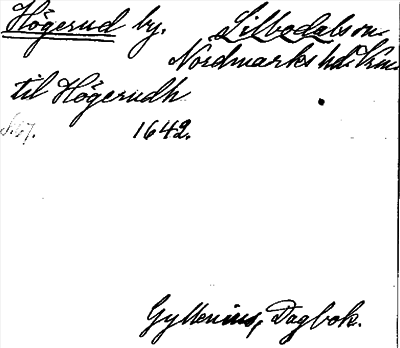 Högerud by. Silbodals sn.
Nordmarks hd. Vrm.
til Högerudh
S. 67. 1642.
Gyllenius, Dagbok.